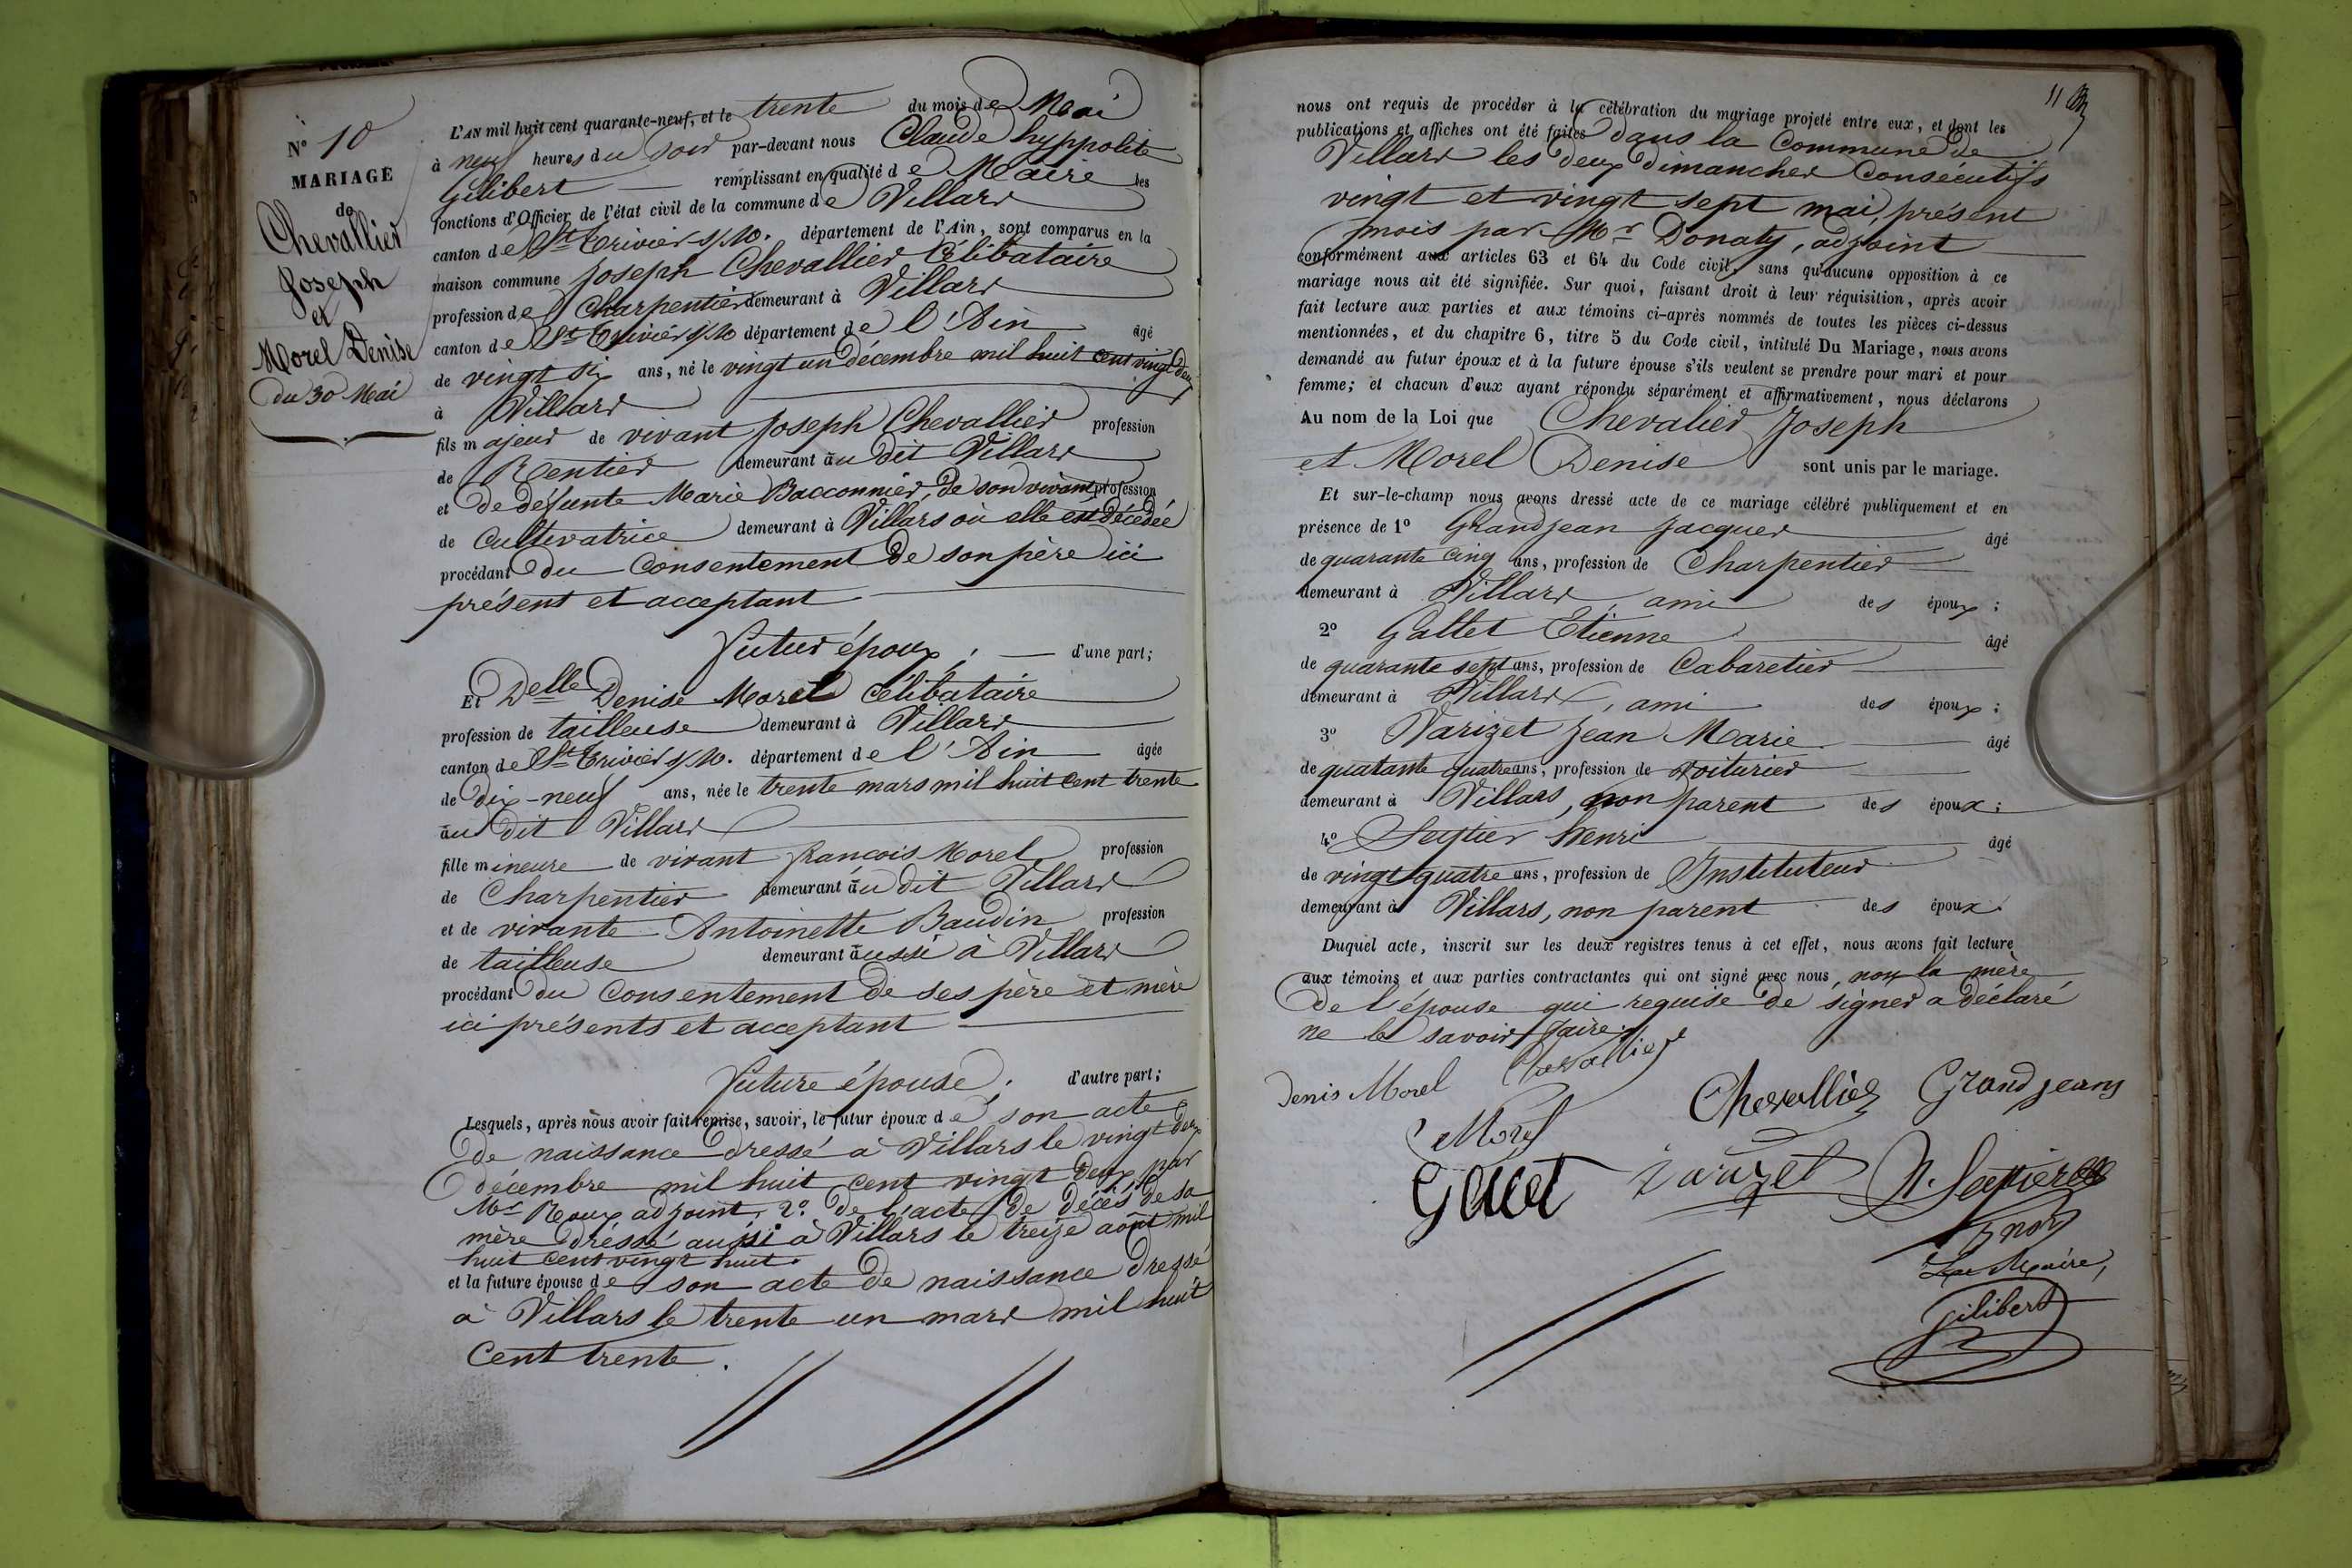 N° 10
MARIAGE
de
Chevallier
Joseph
et
Morel Denise
du 30 Mai
L'AN mil huit cent quarante-neuf, et le trente du mois de Mai
à neuf heures du soir par-devant nous Claude hyppolite
Gilibert remplissant en qualité de Maire les
fonctions d'Officier de l'état civil de la commune de Villars
canton de St Trivier s/M. département de l'Ain, sont comparus en la
maison commune Joseph Chevallier Célibataire
profession de Charpentier demeurant à Villars
canton de St Trivier s/M département de l'Ain âgé
de vingt six ans, né le vingt un décembre mil huit cent vingt deux
à Villars
fils majeur de vivant Joseph Chevallier profession
de Rentier demeurant au dit Villars
et de défunte Marie Bacconnier, de son vivant profession
de Cultivatrice demeurant à Villars où elle est décédée
procédant du Consentement de son père ici
présent et acceptant
futur époux, d'une part;
Et Delle Denise Morel Célibataire
profession de tailleuse demeurant à Villars
canton de St Trivier s/M. département de l'Ain âgée
de Dix-neuf ans, née le trente mars mil huit Cent trente
au dit Villars
fille mineure de vivant françois Morel profession
de Charpentier demeurant au dit Villars
et de vivante Antoinette Baudin profession
de tailleuse demeurant aussi à Villars
procédant du Consentement de ses père et mère
ici présents et acceptant
future épouse, d'autre part;
Lesquels, après nous avoir fait remise, savoir, le futur époux de son acte
de naissance dressé à Villars le vingt deux
décembre mil huit cent vingt deux par
Mr Roux adjoint, 2° de l'acte de décès de sa
mère dréssé aussi à Villars le treize août mil
huit cent vingt huit.
et la future épouse de son acte de naissance dressé
à Villars le trente un mars mil huit
Cent trente.
11
nous ont requis de procéder à la célébration du mariage projeté entre eux, et dont les
publications et affiches ont été faites dans la Commune de
Villars les deux dimanches Consécutifs
vingt et vingt sept mai, présent
mois par Mr Donaty, adjoint
conformément aux articles 63 et 64 du Code civil, sans qu'aucune opposition à ce
mariage nous ait été signifiée. Sur quoi, faisant droit à leur réquisition, après avoir
fait lecture aux parties et aux témoins ci-après nommés de toutes les pièces ci-dessus
mentionnées, et du chapitre 6, titre 5 du Code civil, intitulé Du Mariage, nous avons
demandé au futur époux et à la future épouse s'ils veulent se prendre pour mari et pour
femme; et chacun d'eux ayant répondu séparément et affirmativement, nous déclarons
Au nom de la Loi que Chevalier Joseph
et Morel Denise sont unis par le mariage.
Et sur-le-champ nous avons dressé acte de ce mariage célébré publiquement et en
présence de 1° Grandjean Jacques âgé
de quarante Cinq ans, profession de Charpentier
demeurant à Villars, ami des époux;
2° Gallet Etienne âgé
de quarante sept ans, profession de Cabaretier
demeurant à Villars, ami des époux;
3° Varizet Jean Marie âgé
de quatante quatre ans, profession de voiturier
demeurant à Villars, non parent des époux;
4° Septier henri âgé
de vingt quatre ans, profession de Instituteur
demeurant à Villars, non parent des époux.
Duquel acte, inscrit sur les deux registres tenus à cet effet, nous avons fait lecture
aux témoins et aux parties contractantes qui ont signé avec nous, non la mère
De l'épouse qui requise de signer a déclaré
ne le savoir faire.
Denis Morel Chevallier
Chevallier Grandjean
Morel
Varizet H. Septier
Le Maire,
Gilibert